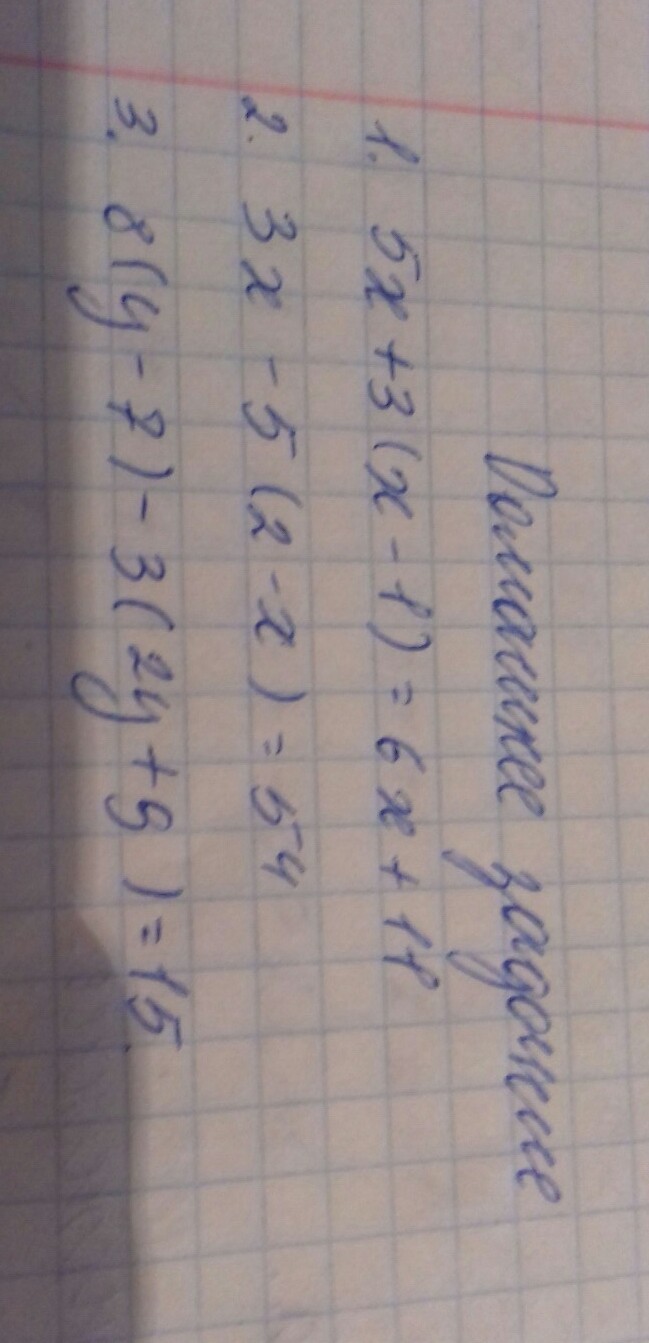 Домашнее задание
1. 5x + 3(x - 1) = 6x + 11
2. 3x - 5(2 - x) = 54
3. 8(y - 7) - 3(2y + 9) = 15